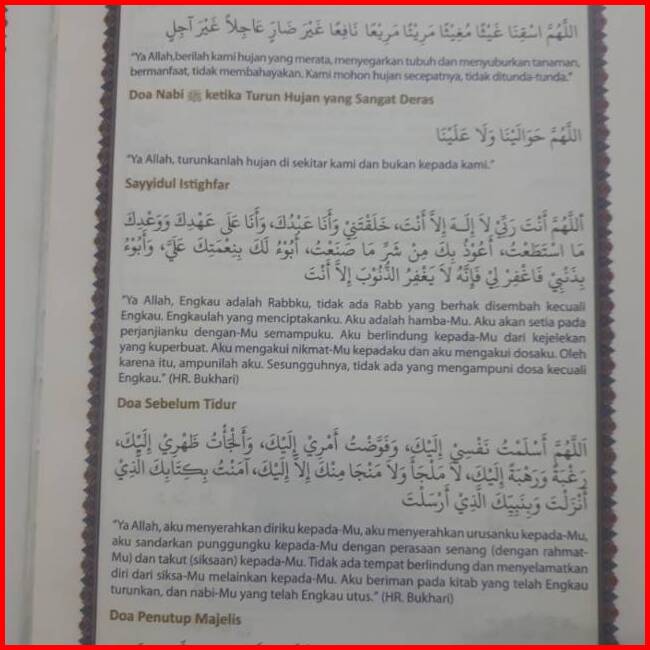 اللَّهُمَّ اسْقِنَا غَيْثًا مُغِيْثًا مَرِيْئًا مَرِيْعًا نَافِعًا غَيْرَ ضَارٍّ عَاجِلاً غَيْرَ آجِلٍ
"Ya Allah,berilah kami hujan yang merata, menyegarkan tubuh dan menyuburkan tanaman,
bermanfaat, tidak membahayakan. Kami mohon hujan secepatnya, tidak ditunda-tunda."
Doa Nabi ﷺ ketika Turun Hujan yang Sangat Deras
اللَّهُمَّ حَوَالَيْنَا وَلَا عَلَيْنَا
"Ya Allah, turunkanlah hujan di sekitar kami dan bukan kepada kami."
Sayyidul Istighfar
اَللَّهُمَّ أَنْتَ رَبِّيْ لاَ إِلَـهَ إِلاَّ أَنْتَ، خَلَقْتَنِيْ وَأَنَا عَبْدُكَ، وَأَنَا عَلَى عَهْدِكَ وَوَعْدِكَ
مَا اسْتَطَعْتُ، أَعُوْذُ بِكَ مِنْ شَرِّ مَا صَنَعْتُ، أَبُوْءُ لَكَ بِنِعْمَتِكَ عَلَيَّ، وَأَبُوْءُ
بِذَنْبِيْ فَاغْفِرْ لِيْ فَإِنَّهُ لاَ يَغْفِرُ الذُّنُوْبَ إِلاَّ أَنْتَ
"Ya Allah, Engkau adalah Rabbku, tidak ada Rabb yang berhak disembah kecuali
Engkau. Engkaulah yang menciptakanku. Aku adalah hamba-Mu. Aku akan setia pada
perjanjianku dengan-Mu semampuku. Aku berlindung kepada-Mu dari kejelekan
yang kuperbuat. Aku mengakui nikmat-Mu kepadaku dan aku mengakui dosaku. Oleh
karena itu, ampunilah aku. Sesungguhnya, tidak ada yang mengampuni dosa kecuali
Engkau." (HR. Bukhari)
Doa Sebelum Tidur
اَللَّهُمَّ أَسْلَمْتُ نَفْسِيْ إِلَيْكَ، وَفَوَّضْتُ أَمْرِيْ إِلَيْكَ، وَأَلْجَأْتُ ظَهْرِيْ إِلَيْكَ،
رَغْبَةً وَرَهْبَةً إِلَيْكَ، لاَ مَلْجَأَ وَلاَ مَنْجَا مِنْكَ إِلاَّ إِلَيْكَ، آمَنْتُ بِكِتَابِكَ الَّذِيْ
أَنْزَلْتَ وَبِنَبِيِّكَ الَّذِيْ أَرْسَلْتَ
"Ya Allah, aku menyerahkan diriku kepada-Mu, aku menyerahkan urusanku kepada-Mu,
aku sandarkan punggungku kepada-Mu dengan perasaan senang (dengan rahmat-
Mu) dan takut (siksaan) kepada-Mu. Tidak ada tempat berlindung dan menyelamatkan
diri dari siksa-Mu melainkan kepada-Mu. Aku beriman pada kitab yang telah Engkau
turunkan, dan nabi-Mu yang telah Engkau utus." (HR. Bukhari)
Doa Penutup Majelis